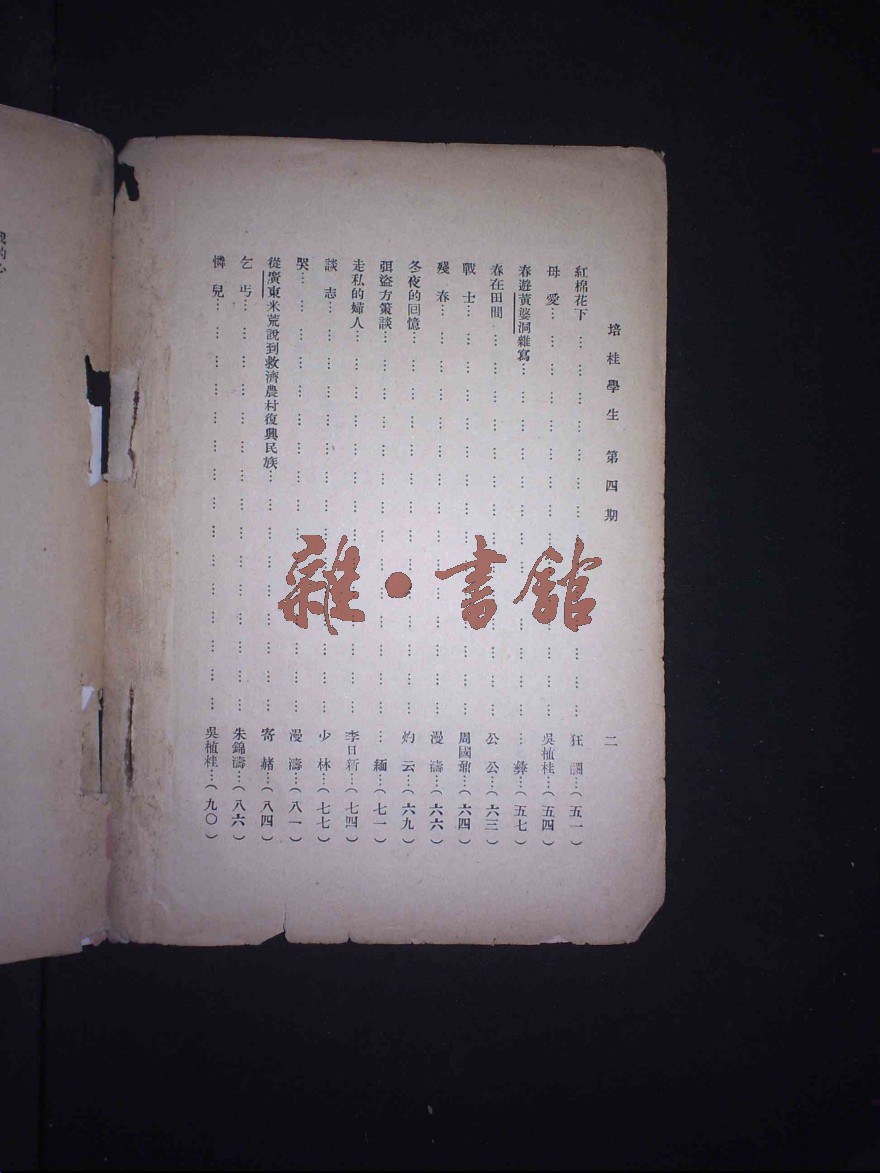 培桂學生 第四期 二
紅棉花下……………………狂瀾…(五一)
母愛……………………吳植桂…(五四)
春遊黃婆洞雜寫……………………彝…(五七)
春在田間……………………公公…(六三)
戰士……………………周國鼐…(六四)
殘春……………………漫濤…(六六)
冬夜的回憶……………………灼云…(六九)
弭盜方策談……………………緬…(七一)
走私的婦人……………………李日新…(七四)
談志……………………少林…(七七)
哭……………………漫濤…(八一)
從廣東米荒說到救濟農村復興民族……………………寄赭…(八四)
乞丐……………………朱錦濤…(八六)
憐兒……………………吳植桂…(九〇)
雜·書館